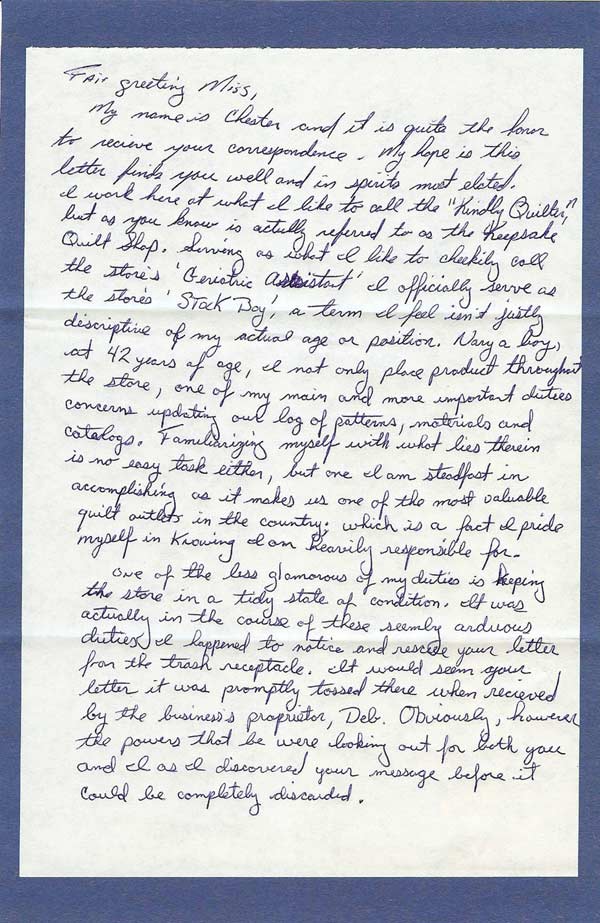 Fair greeting Miss,
My name is Chester and it is quite the honor
to recieve your correspondence. My hope is this
letter finds you well and in spirits most elated.
I work here at what I like to call the "Kindly Quilter,"
but as you know is actually referred to as the Keepsake
Quilt Shop. Serving as what I like to cheekily call
the store's 'Geriatric Assistant' I officially serve as
the store's 'Stock Boy', a term I feel isn't justly
discriptive of my actual age or position. Nary a boy,
at 42 years of age, I not only place product throughout
the store, one of my main and more important duties
concerns updating our log of patterns, materials and
catalogs. Familiarizing myself with what lies therein
is no easy task either, but one I am steadfast in
accomplishing as it makes us one of the most valuable
quilt outlets in the country; which is a fact I pride
myself in knowing I am heavily responsible for.
One of the less glamorous of my duties is keeping
the store in a tidy state of condition. It was
actually in the course of these seemly arduous
duties I happened to notice and rescue your letter
from the trash receptacle. It would seem your
letter it was promptly tossed there when recieved
by the business's proprietor, Deb. Obviously, however
the powers that be were looking out for both you
and I as I discovered your message before it
could be completely discarded.